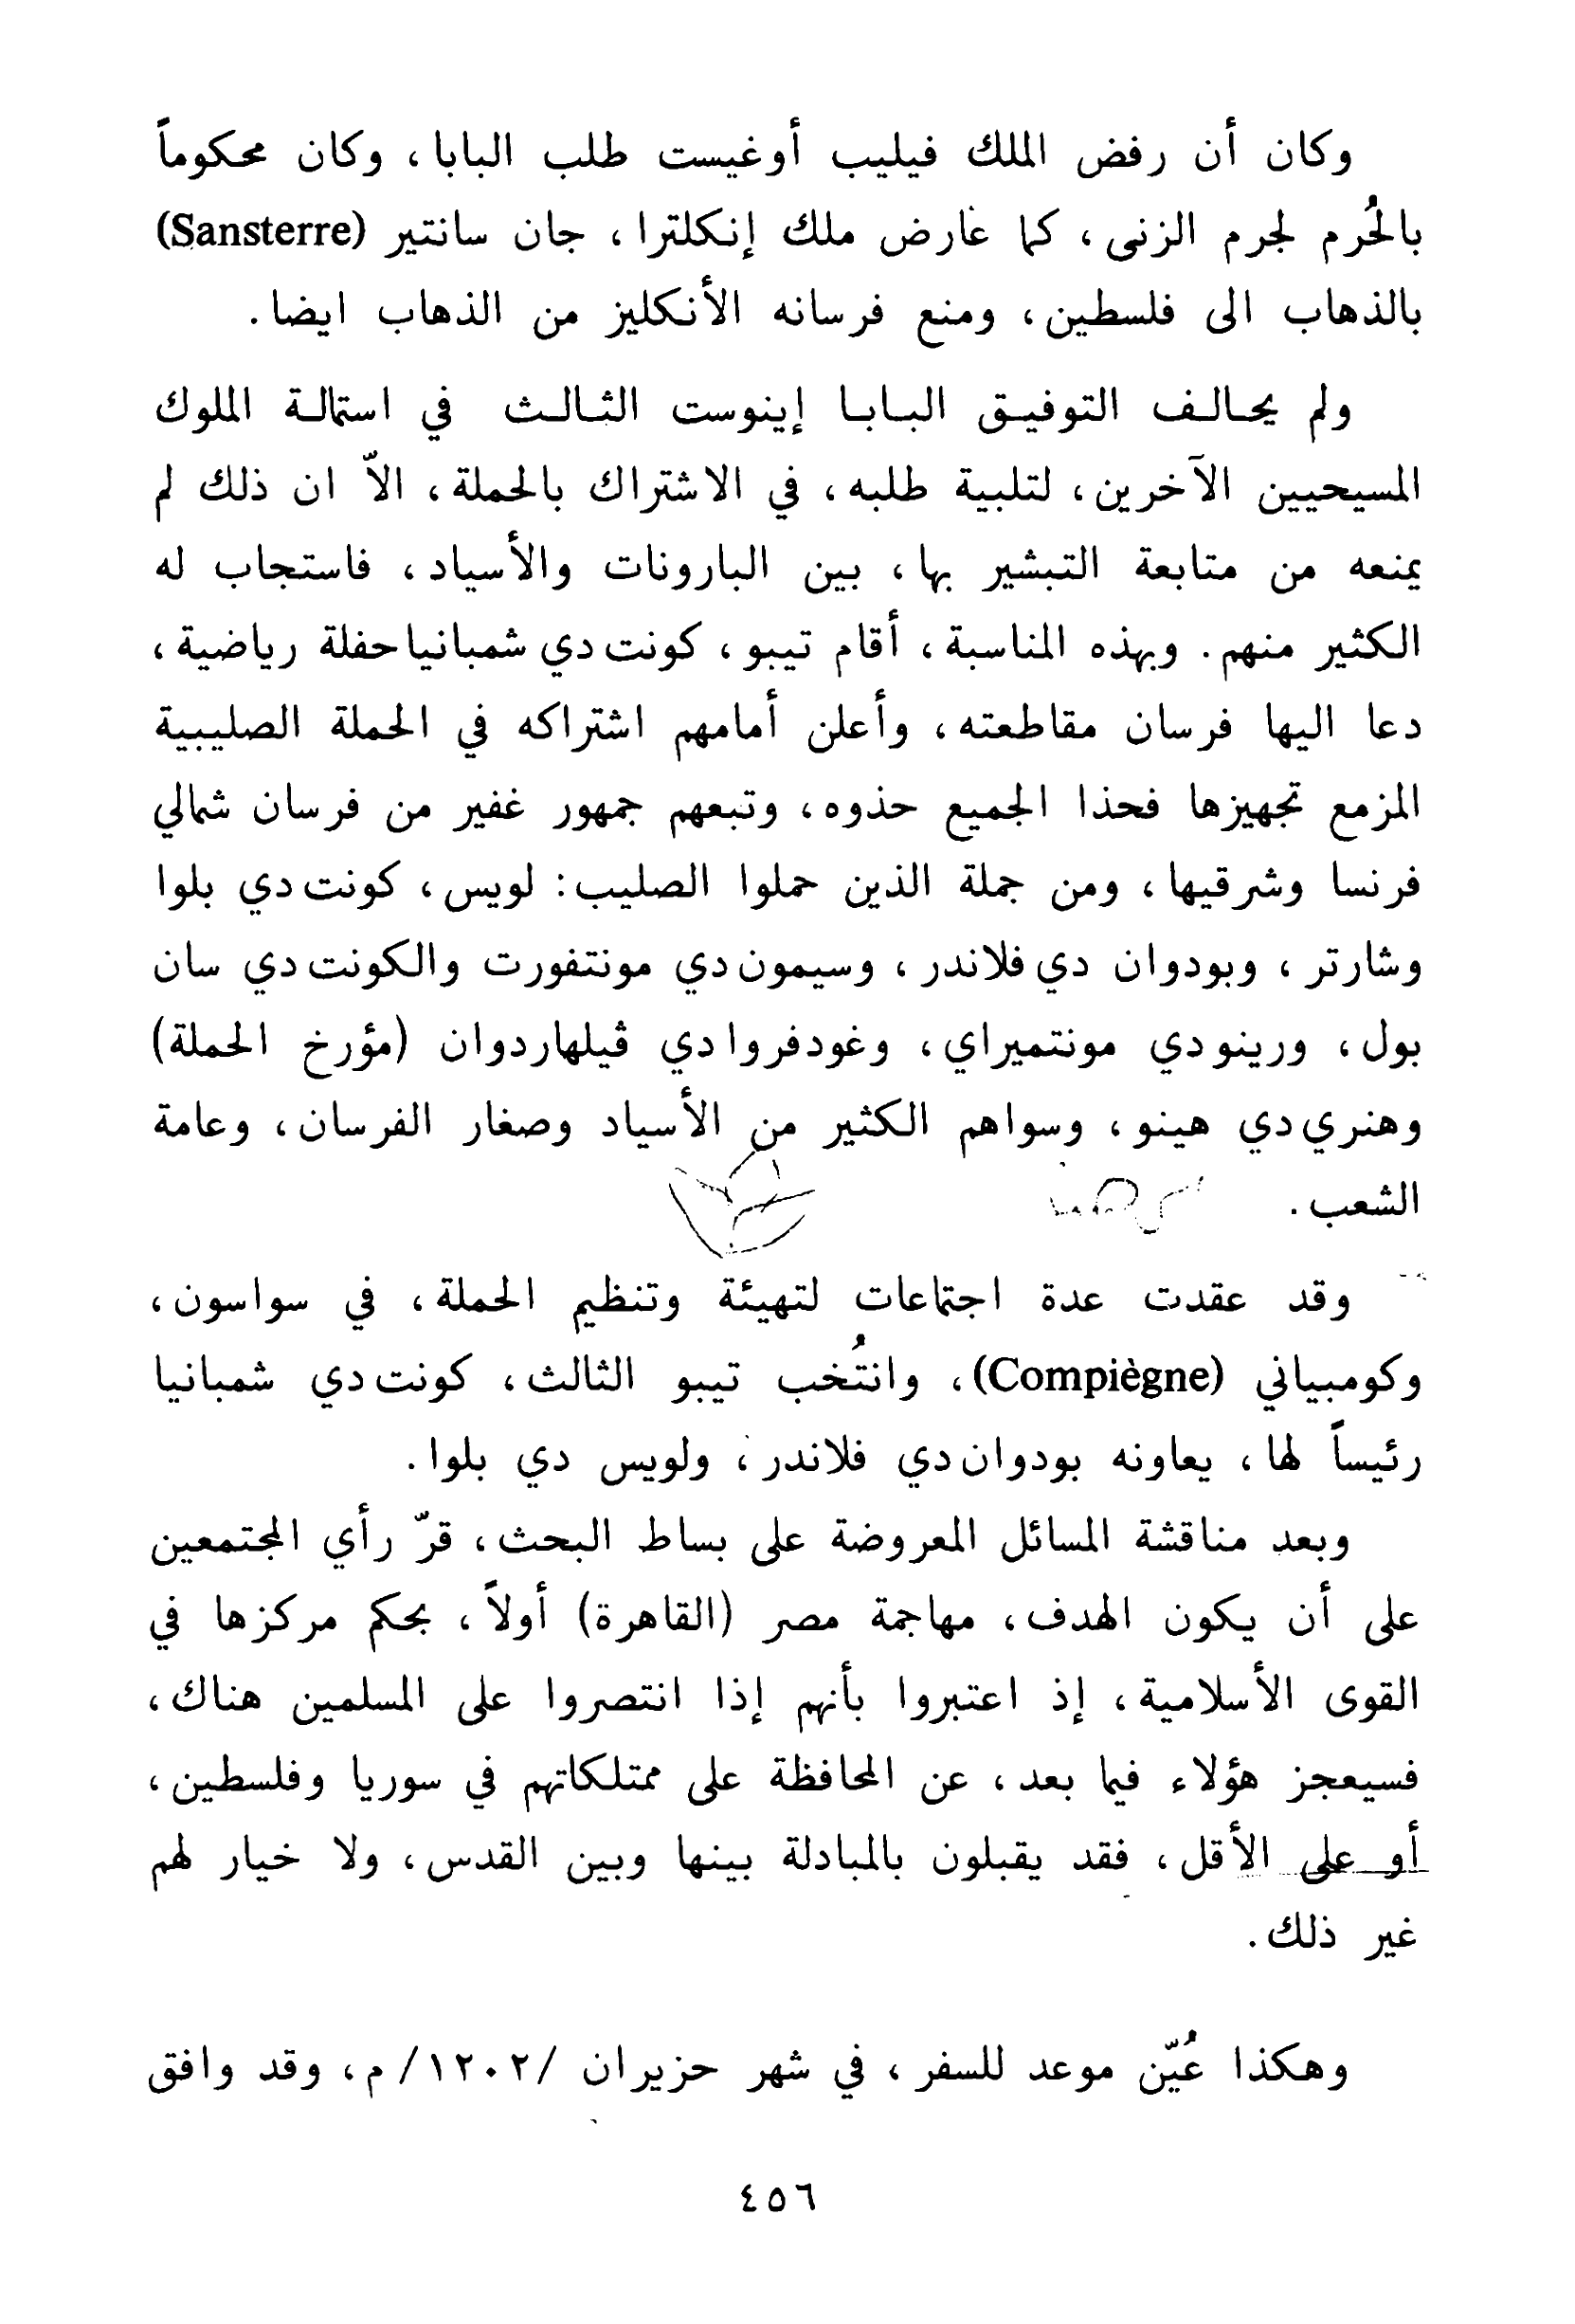 وكان أن رفض الملك فيليب أوغيست طلب البابا، وكان محكوماً
بالحُرم لجرم الزنى، كما عارض ملك إنكلترا، جان سانتير (Sansterre)
بالذهاب الى فلسطين، ومنع فرسانه الأنكليز من الذهاب ايضا.
ولم يحالف التوفيق البابا إينوست الثالث في استمالة الملوك
المسيحيين الآخرين، لتلبية طلبه، في الاشتراك بالحملة، الاّ ان ذلك لم
يمنعه من متابعة التبشير بها، بين البارونات والأسياد، فاستجاب له
الكثير منهم. وبهذه المناسبة، أقام تيبو، كونت دي شمبانيا حفلة رياضية،
دعا اليها فرسان مقاطعته، وأعلن أمامهم اشتراكه في الحملة الصليبية
المزمع تجهيزها فحذا الجميع حذوه، وتبعهم جمهور غفير من فرسان شمالي
فرنسا وشرقيها، ومن جملة الذين حملوا الصليب: لويس، كونت دي بلوا
وشارتر، وبودوان دي فلاندر، وسيمون دي مونتفورت والكونت دي سان
بول، ورينو دي مونتميراي، وغودفروا دي ڤيلهاردوان (مؤرخ الحملة)
وهنري دي هينو، وسواهم الكثير من الأسياد وصغار الفرسان، وعامة
الشعب.
وقد عقدت عدة اجتماعات لتهيئة وتنظيم الحملة، في سواسون،
وكومبياني (Compiègne)، وانتُخب تيبو الثالث، كونت دي شمبانيا
رئيساً لها، يعاونه بودوان دي فلاندر، ولويس دي بلوا.
وبعد مناقشة المسائل المعروضة على بساط البحث، قرّ رأي المجتمعين
على أن يكون الهدف، مهاجمة مصر (القاهرة) أولاً، بحكم مركزها في
القوى الأسلامية، إذ اعتبروا بأنهم إذا انتصروا على المسلمين هناك،
فسيعجز هؤلاء فيما بعد، عن المحافظة على ممتلكاتهم في سوريا وفلسطين،
أو على الأقل، فقد يقبلون بالمبادلة بينها وبين القدس، ولا خيار لهم
غير ذلك.
وهكذا عُيّن موعد للسفر، في شهر حزيران /١٢٠٢/ م، وقد وافق
٤٥٦